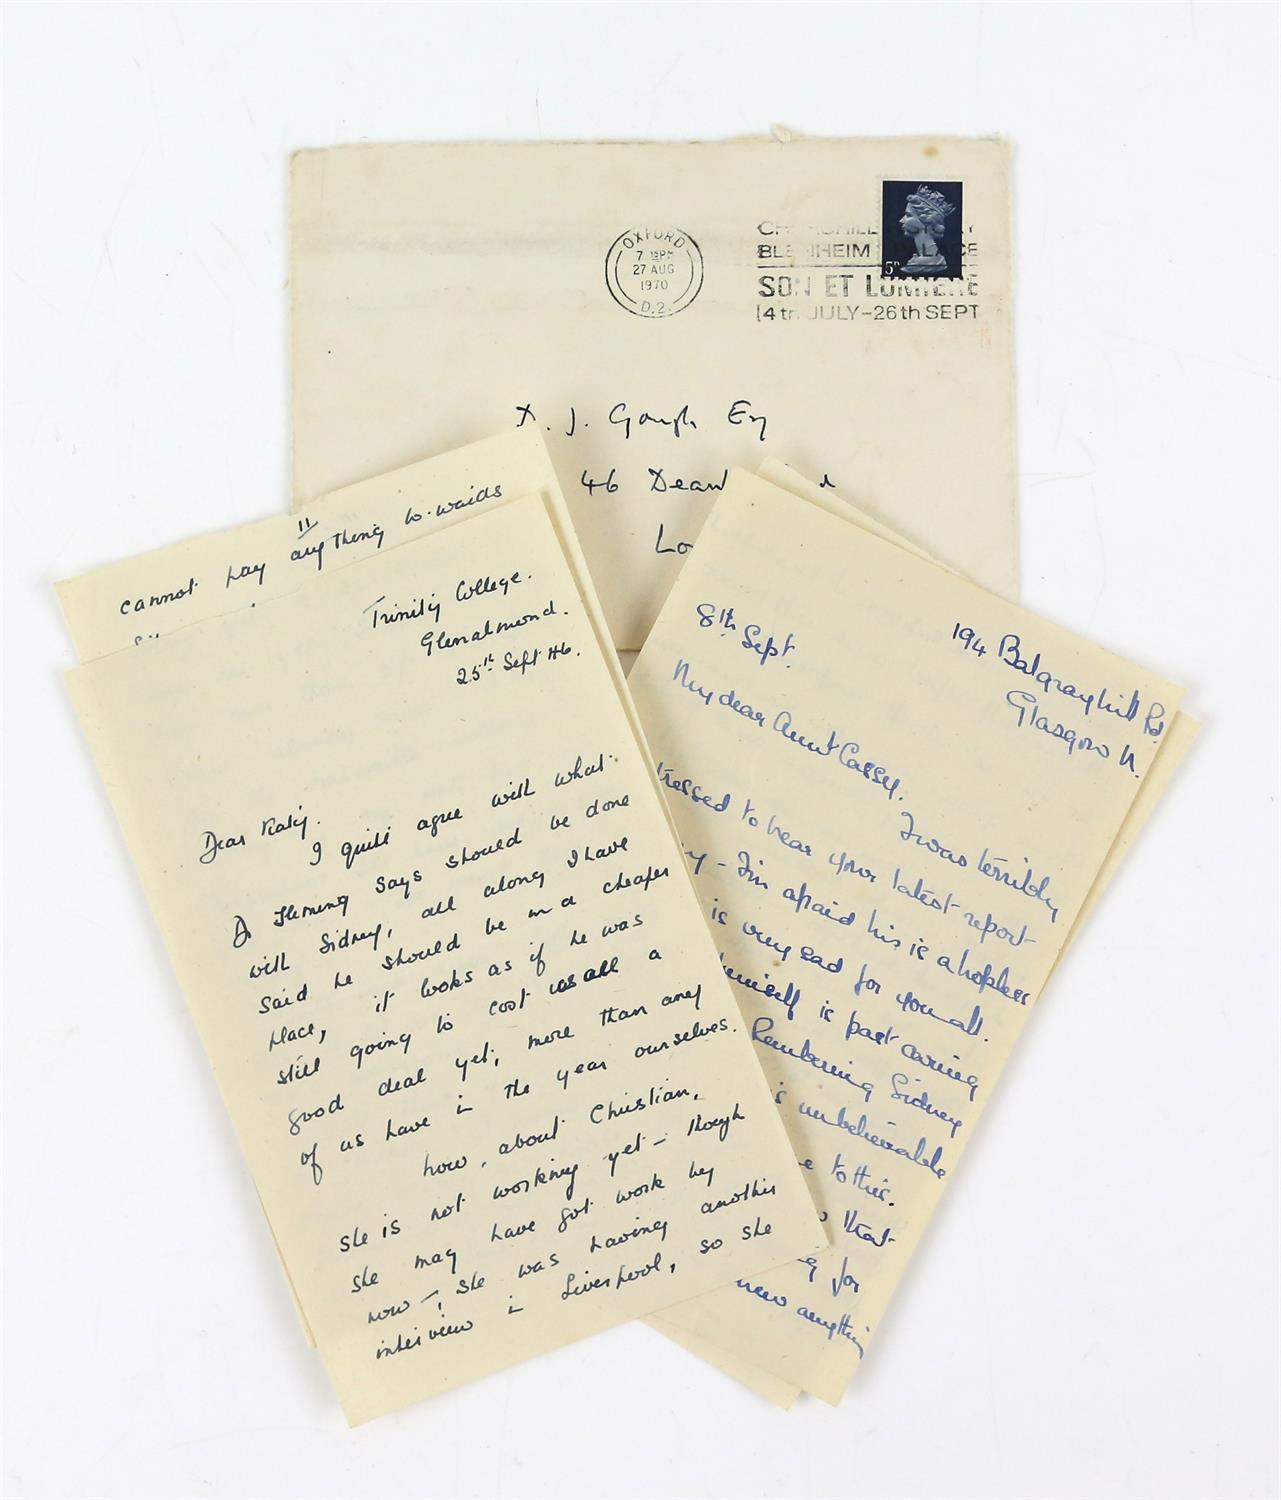 OXFORD
7 15PM
27 AUG
1970
D.2.
BLENHEIM PALACE
SON ET LUMIERE
14th JULY-26th SEPT
5P
D. J. Gough Esq
46
Lo
II
cannot pay anything towards
Trinity College.
Glenalmond.
25th Sept 46.
Dear Katy.
I quite agree with what
Dr Fleming says should be done
with Sidney, all along I have
said he should be in a cheaper
place, it looks as if he was
still going to cost us all a
good deal yet, more than any
of us have in the year ourselves.
how, about Christian,
she is not working yet – though
she may have got work by
now –, she was having another
interview in Liverpool, so she
194 Balgrayhill Rd.
Glasgow N.
8th Sept.
My dear Aunt Cassy.
I was terribly
tressed to hear your latest report
y – I'm afraid his is a hopless
is very sad for you all.
himself is past caring
Sidney
is unbelievable
e to this.
that
g for
new anything